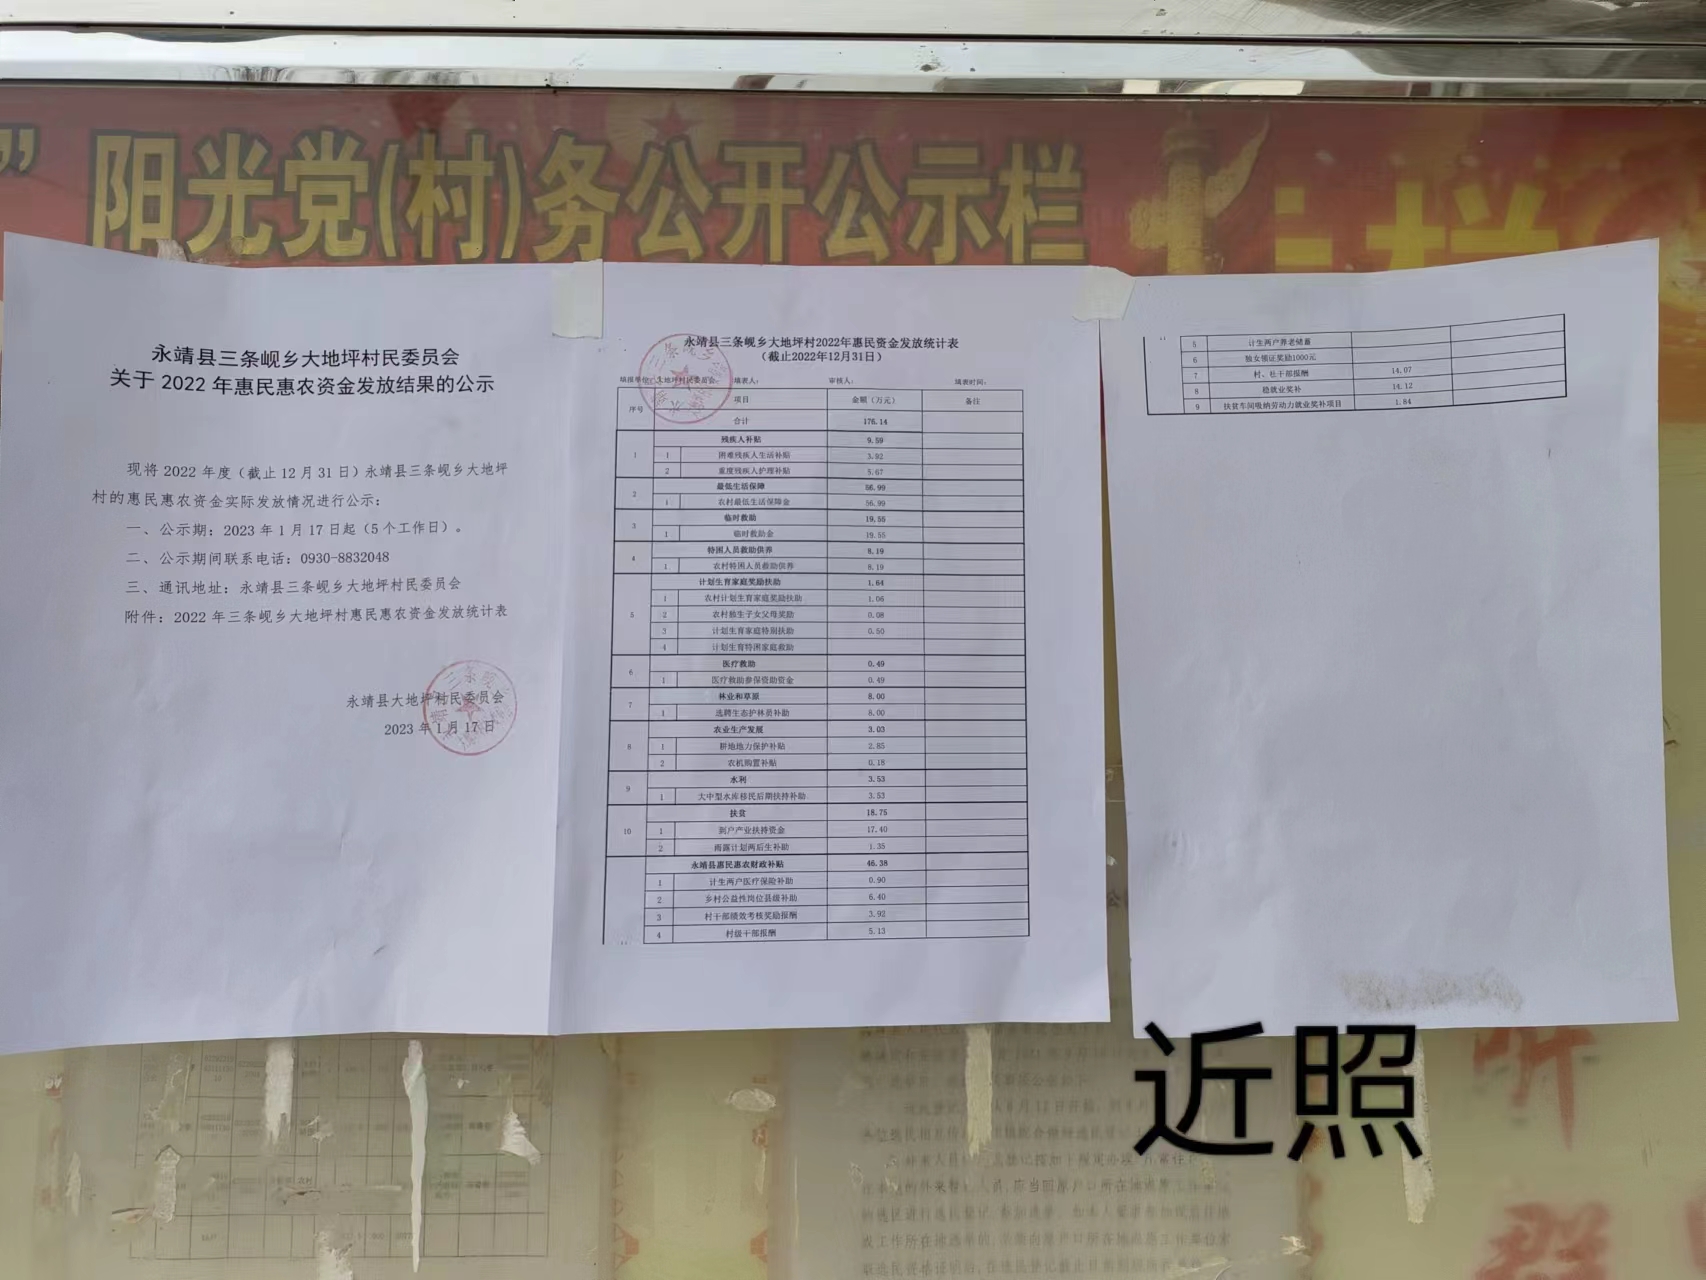 ” 阳光党(村)务公开公示栏
永靖县三条岘乡大地坪村民委员会
关于 2022 年惠民惠农资金发放结果的公示
现将 2022 年度（截止 12 月 31 日）永靖县三条岘乡大地坪
村的惠民惠农资金实际发放情况进行公示：
一、公示期：2023 年 1 月 17 日起（5 个工作日）。
二、公示期间联系电话：0930-8832048
三、通讯地址：永靖县三条岘乡大地坪村民委员会
附件：2022 年三条岘乡大地坪村惠民惠农资金发放统计表
永靖县大地坪村民委员会
2023 年 1 月 17 日
永靖县三条岘乡大地坪村2022年惠民资金发放统计表
（截止2022年12月31日）
填报单位：大地坪村民委员会 填表人： 审核人： 填表时间：
序号 项目 金额（万元） 备注
合计 176.14
1 残疾人补贴 9.59
1 困难残疾人生活补贴 3.92
2 重度残疾人护理补贴 5.67
2 最低生活保障 56.99
1 农村最低生活保障金 56.99
3 临时救助 19.55
1 临时救助金 19.55
4 特困人员救助供养 8.19
1 农村特困人员救助供养 8.19
5 计划生育家庭奖励扶助 1.64
1 农村计划生育家庭奖励扶助 1.06
2 农村独生子女父母奖励 0.08
3 计划生育家庭特别扶助 0.50
4 计划生育特困家庭救助
6 医疗救助 0.49
1 医疗救助参保资助资金 0.49
7 林业和草原 8.00
1 选聘生态护林员补助 8.00
8 农业生产发展 3.03
1 耕地地力保护补贴 2.85
2 农机购置补贴 0.18
9 水利 3.53
1 大中型水库移民后期扶持补助 3.53
10 扶贫 18.75
1 到户产业扶持资金 17.40
2 雨露计划两后生补助 1.35
永靖县惠民惠农财政补贴 46.38
1 计生两户医疗保险补助 0.90
2 乡村公益性岗位县级补助 6.40
3 村干部绩效考核奖励报酬 3.92
4 村级干部报酬 5.13
5 计生两户养老储蓄
6 独女领证奖励1000元
7 村、社干部报酬 14.07
8 稳就业奖补 14.12
9 扶贫车间吸纳劳动力就业奖补项目 1.84
近照